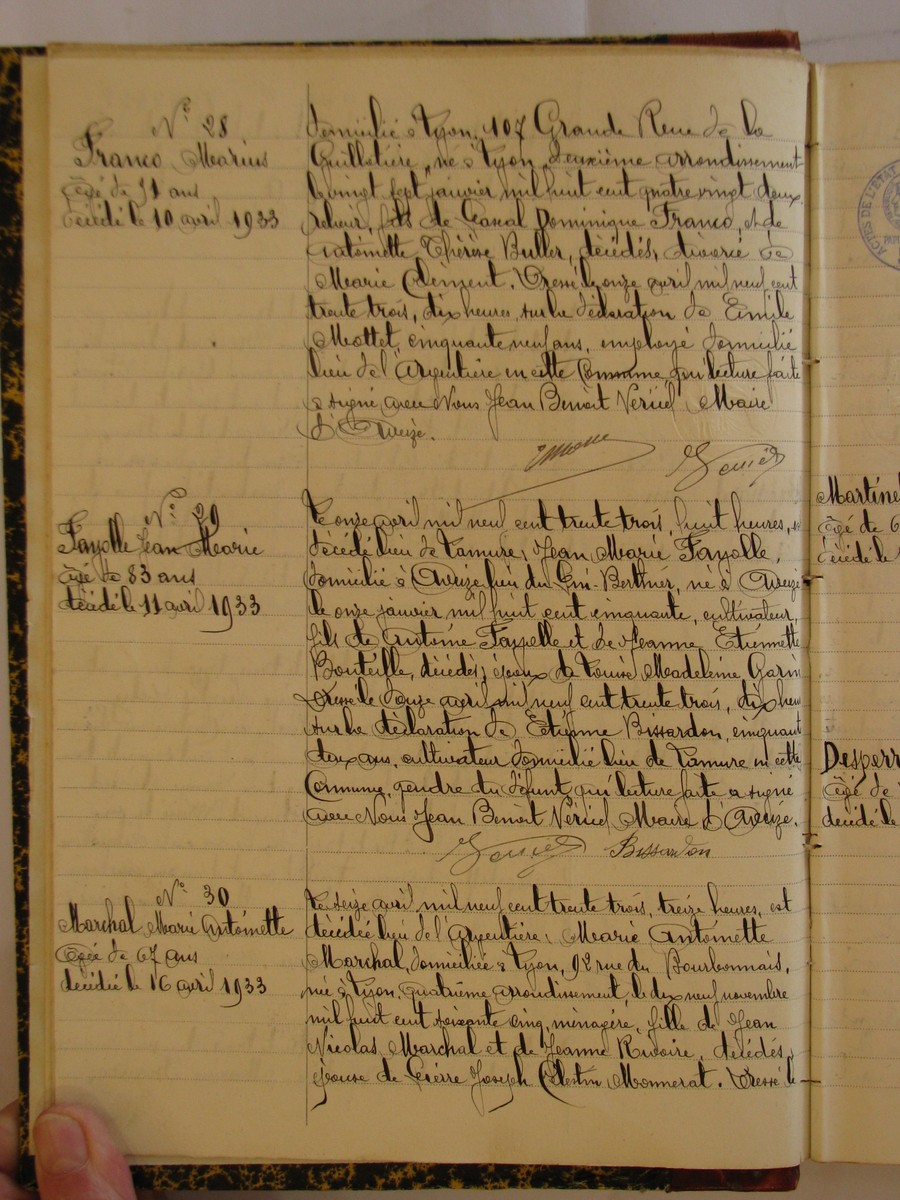 N° 28
Franco Marius
âgé de 51 ans
décédé le 10 avril 1933
domicilié à Lyon, 107 Grande Rue de la
Guillotière, né à Lyon deuxième arrondissement
le vingt sept janvier mil huit cent quatre vingt deux,
relieur, fils de Pascal Dominique Franco, et de
Antoinette Thérèse Buller, décédés, divorcé de
Marie Clément. Dressé le onze avril mil neuf cent
trente trois, dix heures, sur la déclaration de Emile
Mottet, cinquante neuf ans, employé domicilié
lieu de l'Argentière en cette Commune, qui lecture faite
a signé avec Nous Jean Benoit Vériel Maire
d'Aveize.
N° 29
Fayolle Jean Marie
âgé de 83 ans
décédé le 11 avril 1933
Le onze avril mil neuf cent trente trois, huit heures, est
décédé lieu de Lamure, Jean Marie Fayolle,
domicilié à Aveize lieu du né à Aveize
le onze janvier mil huit cent cinquante, cultivateur,
fils de Antoine Fayolle et de Jeanne Etiennette
Bouteille, décédés; époux de Louise Madeleine
Dressé le douze avril mil neuf cent trente trois, dix heu
sur la déclaration de Etienne Bissardon, cinquant
deux ans, cultivateur domicilié lieu de Lamure en cette
Commune, gendre du défunt, qui lecture faite a signé
avec Nous Jean Benoit Vériel Maire d'Aveize.
Bissardon
N° 30
Marchal Marie Antoinette
âgée de 67 ans
décédée le 16 avril 1933
Le seize avril mil neuf cent trente trois, treize heures, est
décédée lieu de l'Argentière, Marie Antoinette
Marchal, domiciliée à Lyon, 92 rue du Bourbonnais,
née à Lyon, quatrième arrondissement, le dix neuf novembre
mil huit cent soixante cinq, ménagère, fille de Jean
Nicolas Marchal et de Jeanne Rivoire, décédés,
épouse de Pierre Joseph Célestin Monnerat. Dressé le
ACTES DE L'ETAT
Martinel
âgé de 6
décédé le
Desperr
âgé de
décédé le